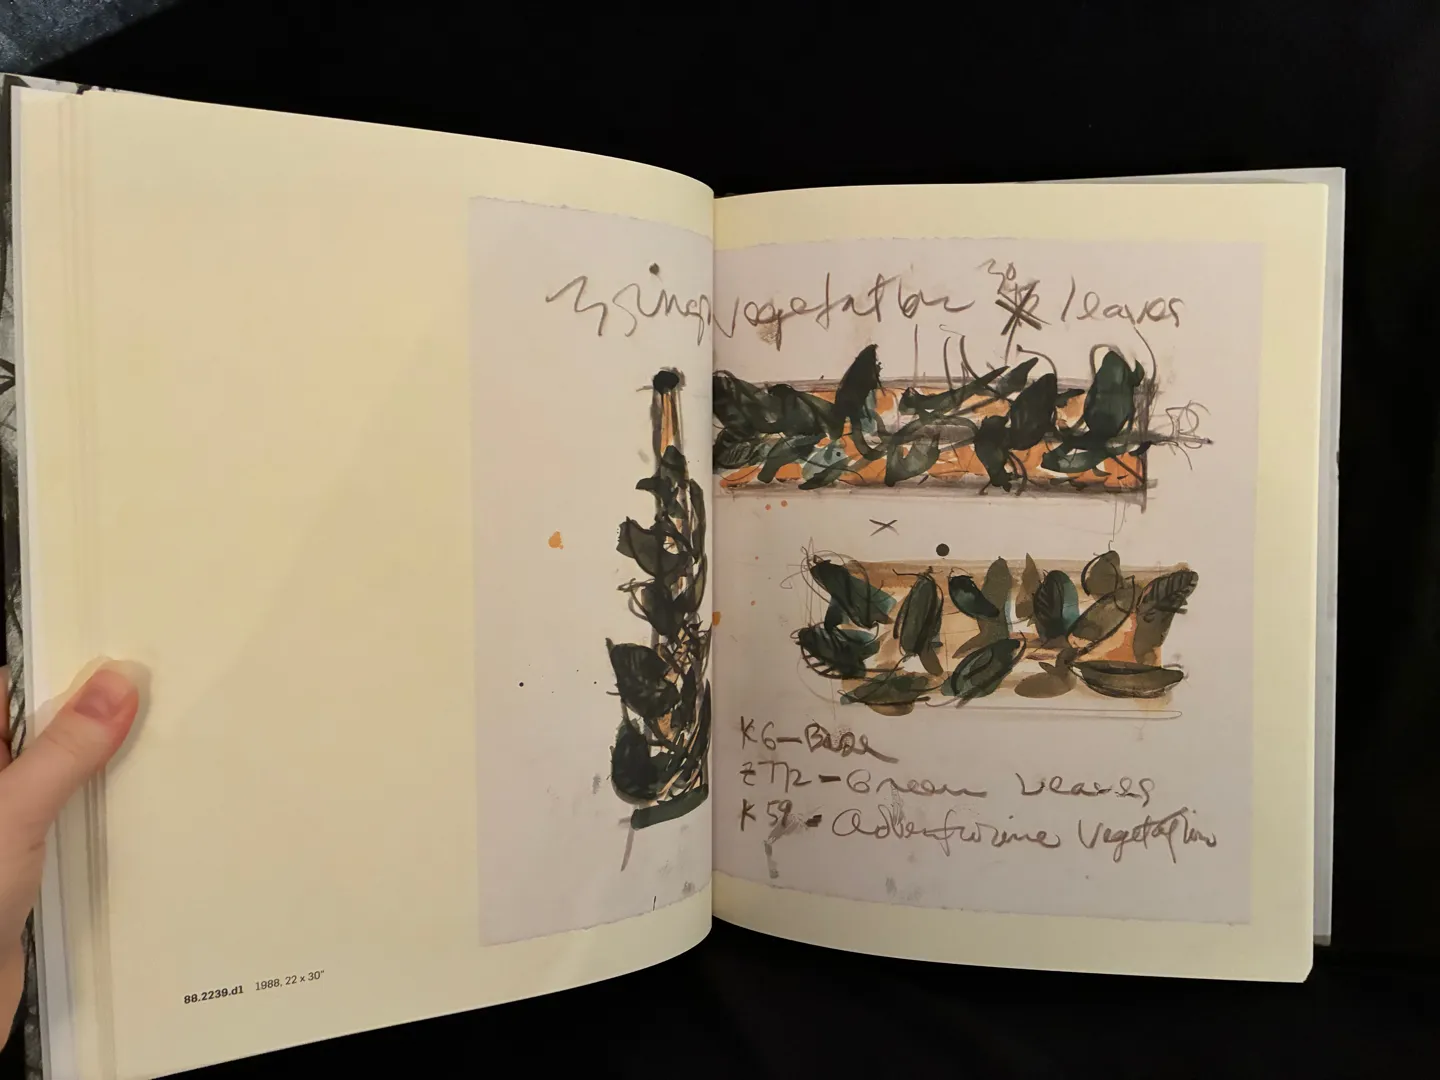 vegetation 30 leaves
K6-Base
Z772-Green Leaves
K59-Adventurine Vegetation
88.2239.d1 1988, 22 x 30"